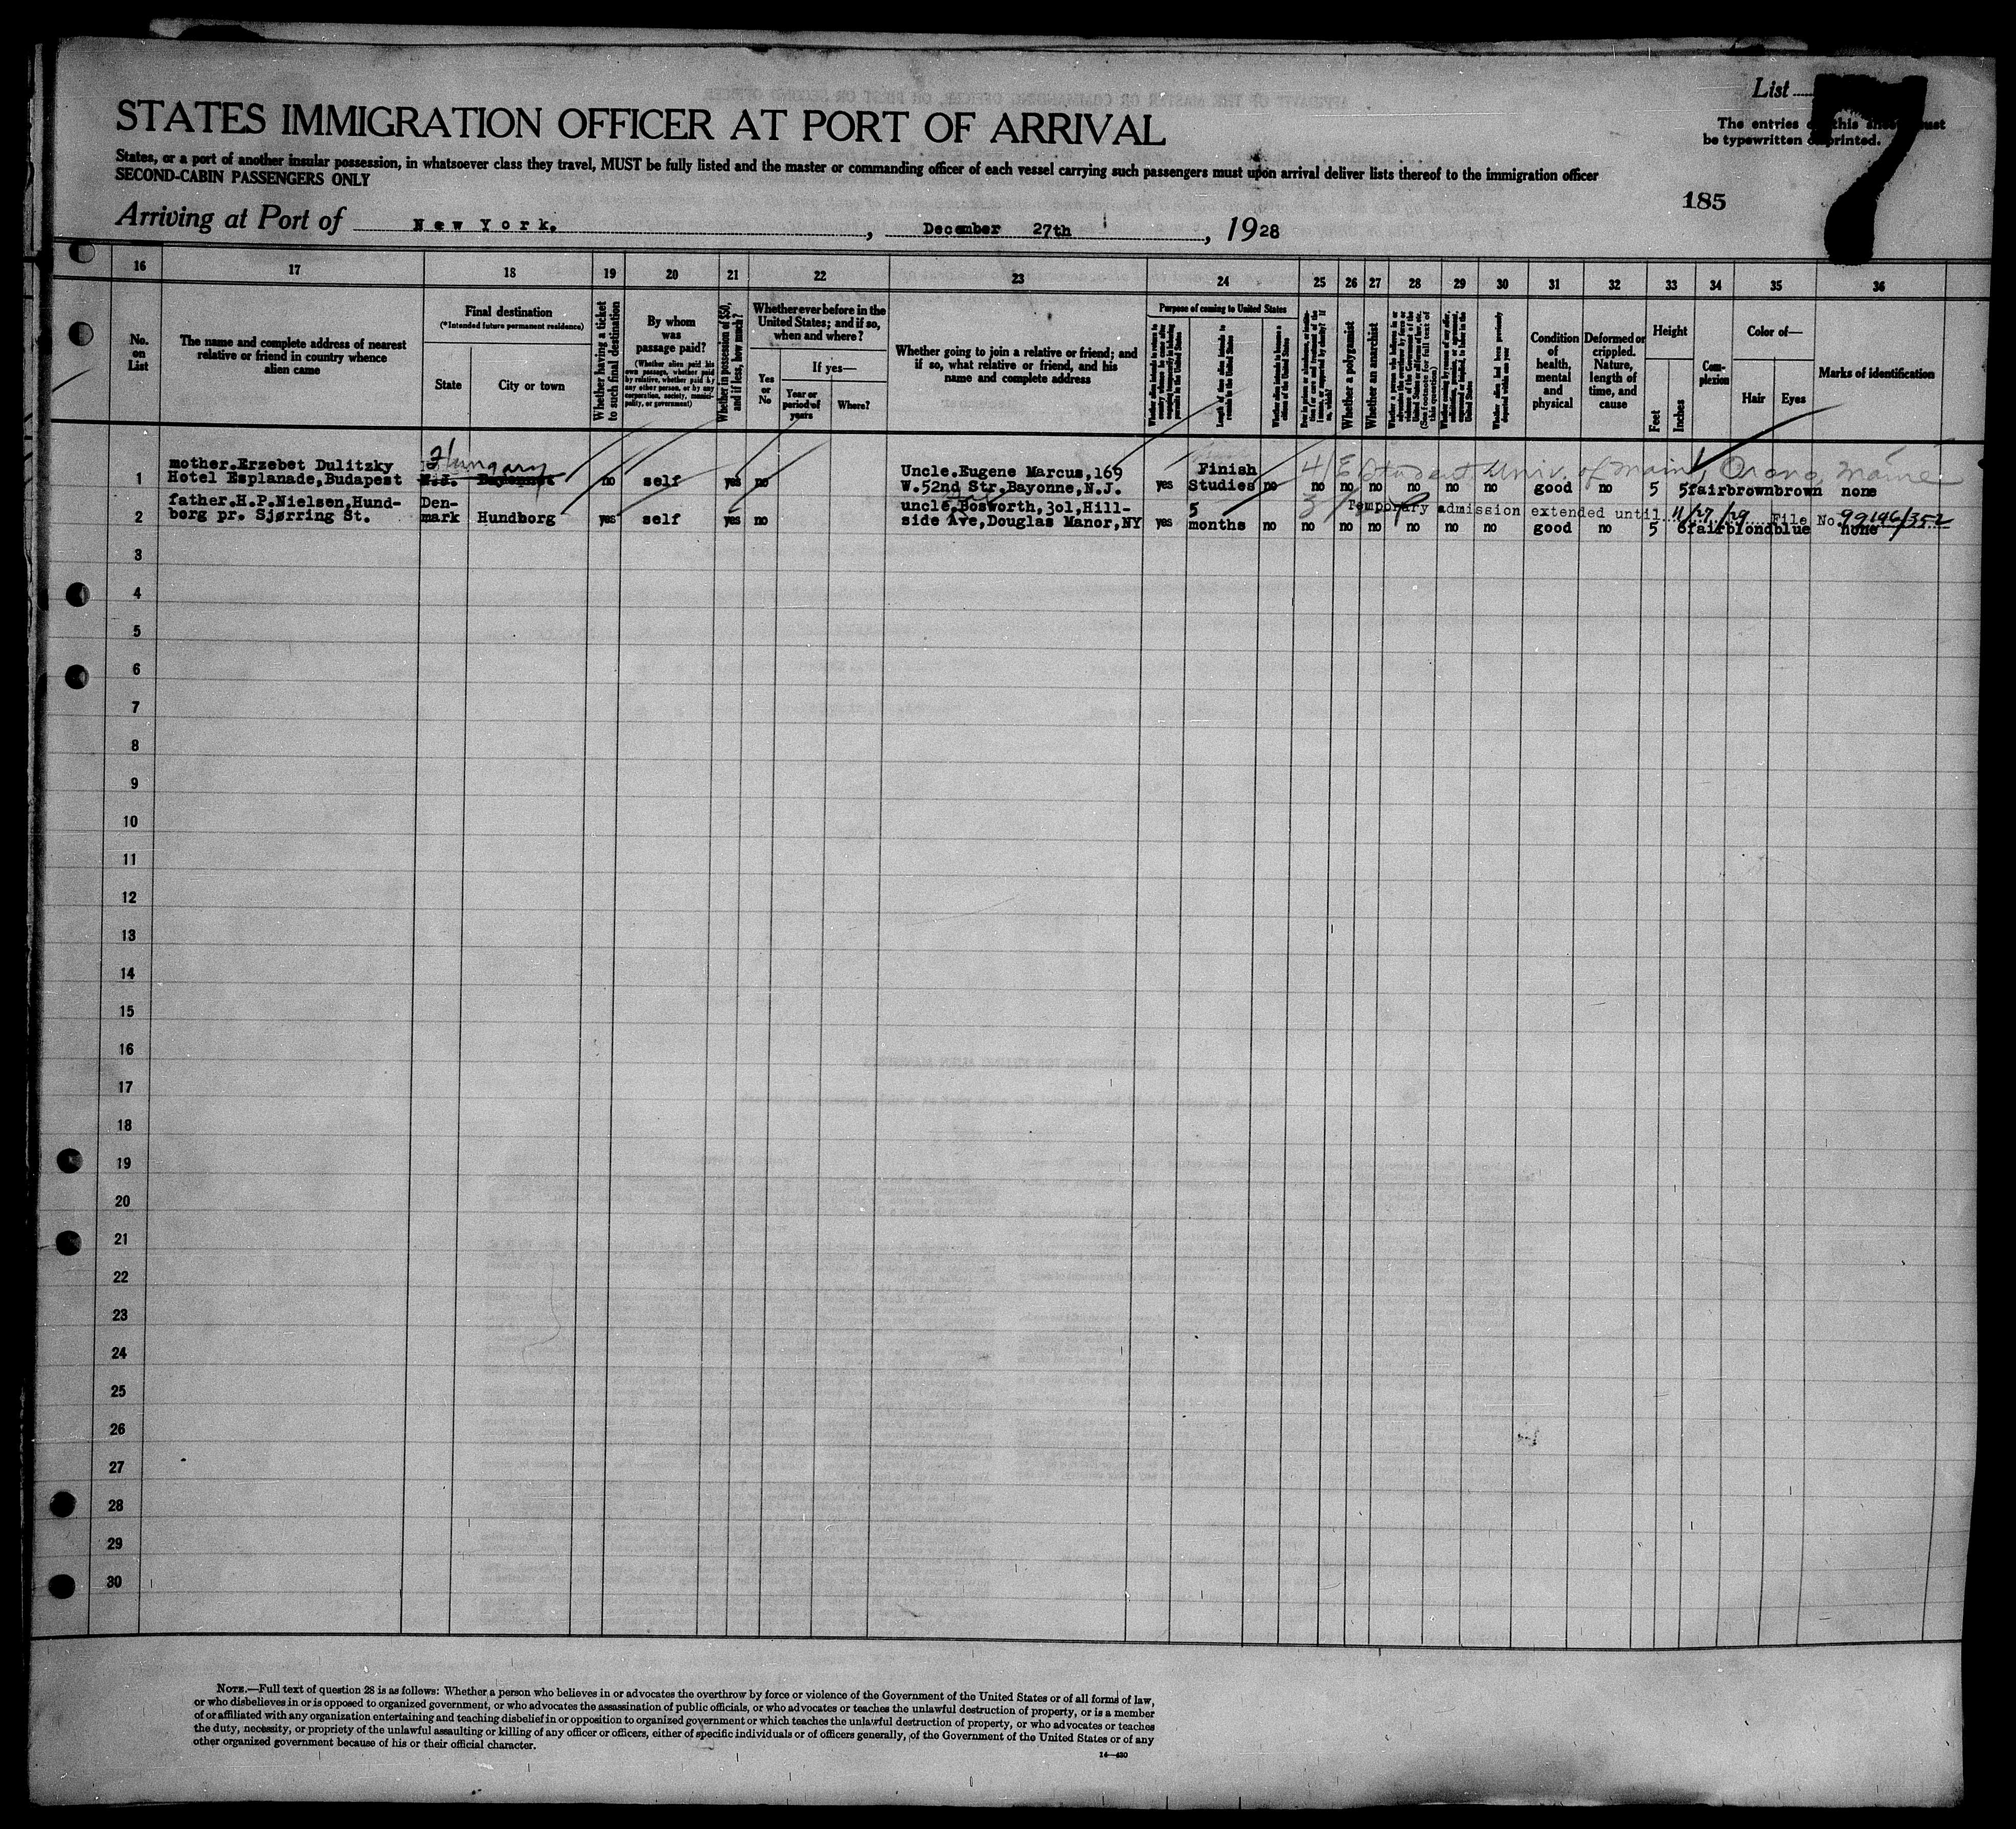 List
7
STATES IMMIGRATION OFFICER AT PORT OF ARRIVAL
The entries this must
be typewritten or printed.
States, or a port of another insular possession, in whatsoever class they travel, MUST be fully listed and the master or commanding officer of each vessel carrying such passengers must upon arrival deliver lists thereof to the immigration officer
SECOND-CABIN PASSENGERS ONLY
185
Arriving at Port of New York. , December 27th , 1928
16 17 18 19 20 21 22 23 24 25 26 27 28 29 30 31 32 33 34 35 36
No. on List
The name and complete address of nearest relative or friend in country whence alien came
Final destination
(*Intended future permanent residence)
State
City or town
Whether having a ticket to such final destination
By whom was passage paid?
(Whether alien paid his own passage, whether paid by relative, whether paid by any other person, or by any corporation, society, municipality, or government)
Whether in possession of $50, and if less, how much?
Whether ever before in the United States; and if so, when and where?
Yes or No
If yes—
Year or period of years
Where?
Whether going to join a relative or friend; and if so, what relative or friend, and his name and complete address
Purpose of coming to United States
Length of time alien intends to remain in the United States
Whether alien intends to become a citizen of the United States
Whether a polygamist
Whether an anarchist
(See footnote for full text of this question)
Whether alien had been previously deported within one year
Condition of health, mental and physical
Deformed or crippled. Nature, length of time, and cause
Height
Feet
Inches
Complexion
Color of—
Hair
Eyes
Marks of identification
Hungary
4/E Student Univ. of Maine, Orono, Maine
1 mother.Erzebet Dulitzky
Hotel Esplanade,Budapest N.J. Bayonne no self yes no Uncle.Eugene Marcus,169
W.52nd Str.Bayonne,N.J. yes Finish
Studies no no no no no no no good no 5 5 fair brown brown none
2 father.H.P.Nielsen,Hund-
borg pr. Sjørring St. Den-
mark Hundborg yes self yes no uncle,Bosworth,301,Hill-
side Ave,Douglas Manor,NY yes 5
months no no no no no no no good no 5 6 fair blond blue none
3/ Temporary admission extended until 11/27/29 File No. 99196/352
3
4
5
6
7
8
9
10
11
12
13
14
15
16
17
18
19
20
21
22
23
24
25
26
27
28
29
30
NOTE.—Full text of question 28 is as follows: Whether a person who believes in or advocates the overthrow by force or violence of the Government of the United States or of all forms of law,
or who disbelieves in or is opposed to organized government, or who advocates the assassination of public officials, or who advocates or teaches the unlawful destruction of property, or is a member
of or affiliated with any organization entertaining and teaching disbelief in or opposition to organized government or which teaches the unlawful destruction of property, or who advocates or teaches
the duty, necessity, or propriety of the unlawful assaulting or killing of any officer or officers, either of specific individuals or of officers generally, of the Government of the United States or of any
other organized government because of his or their official character.
14—430